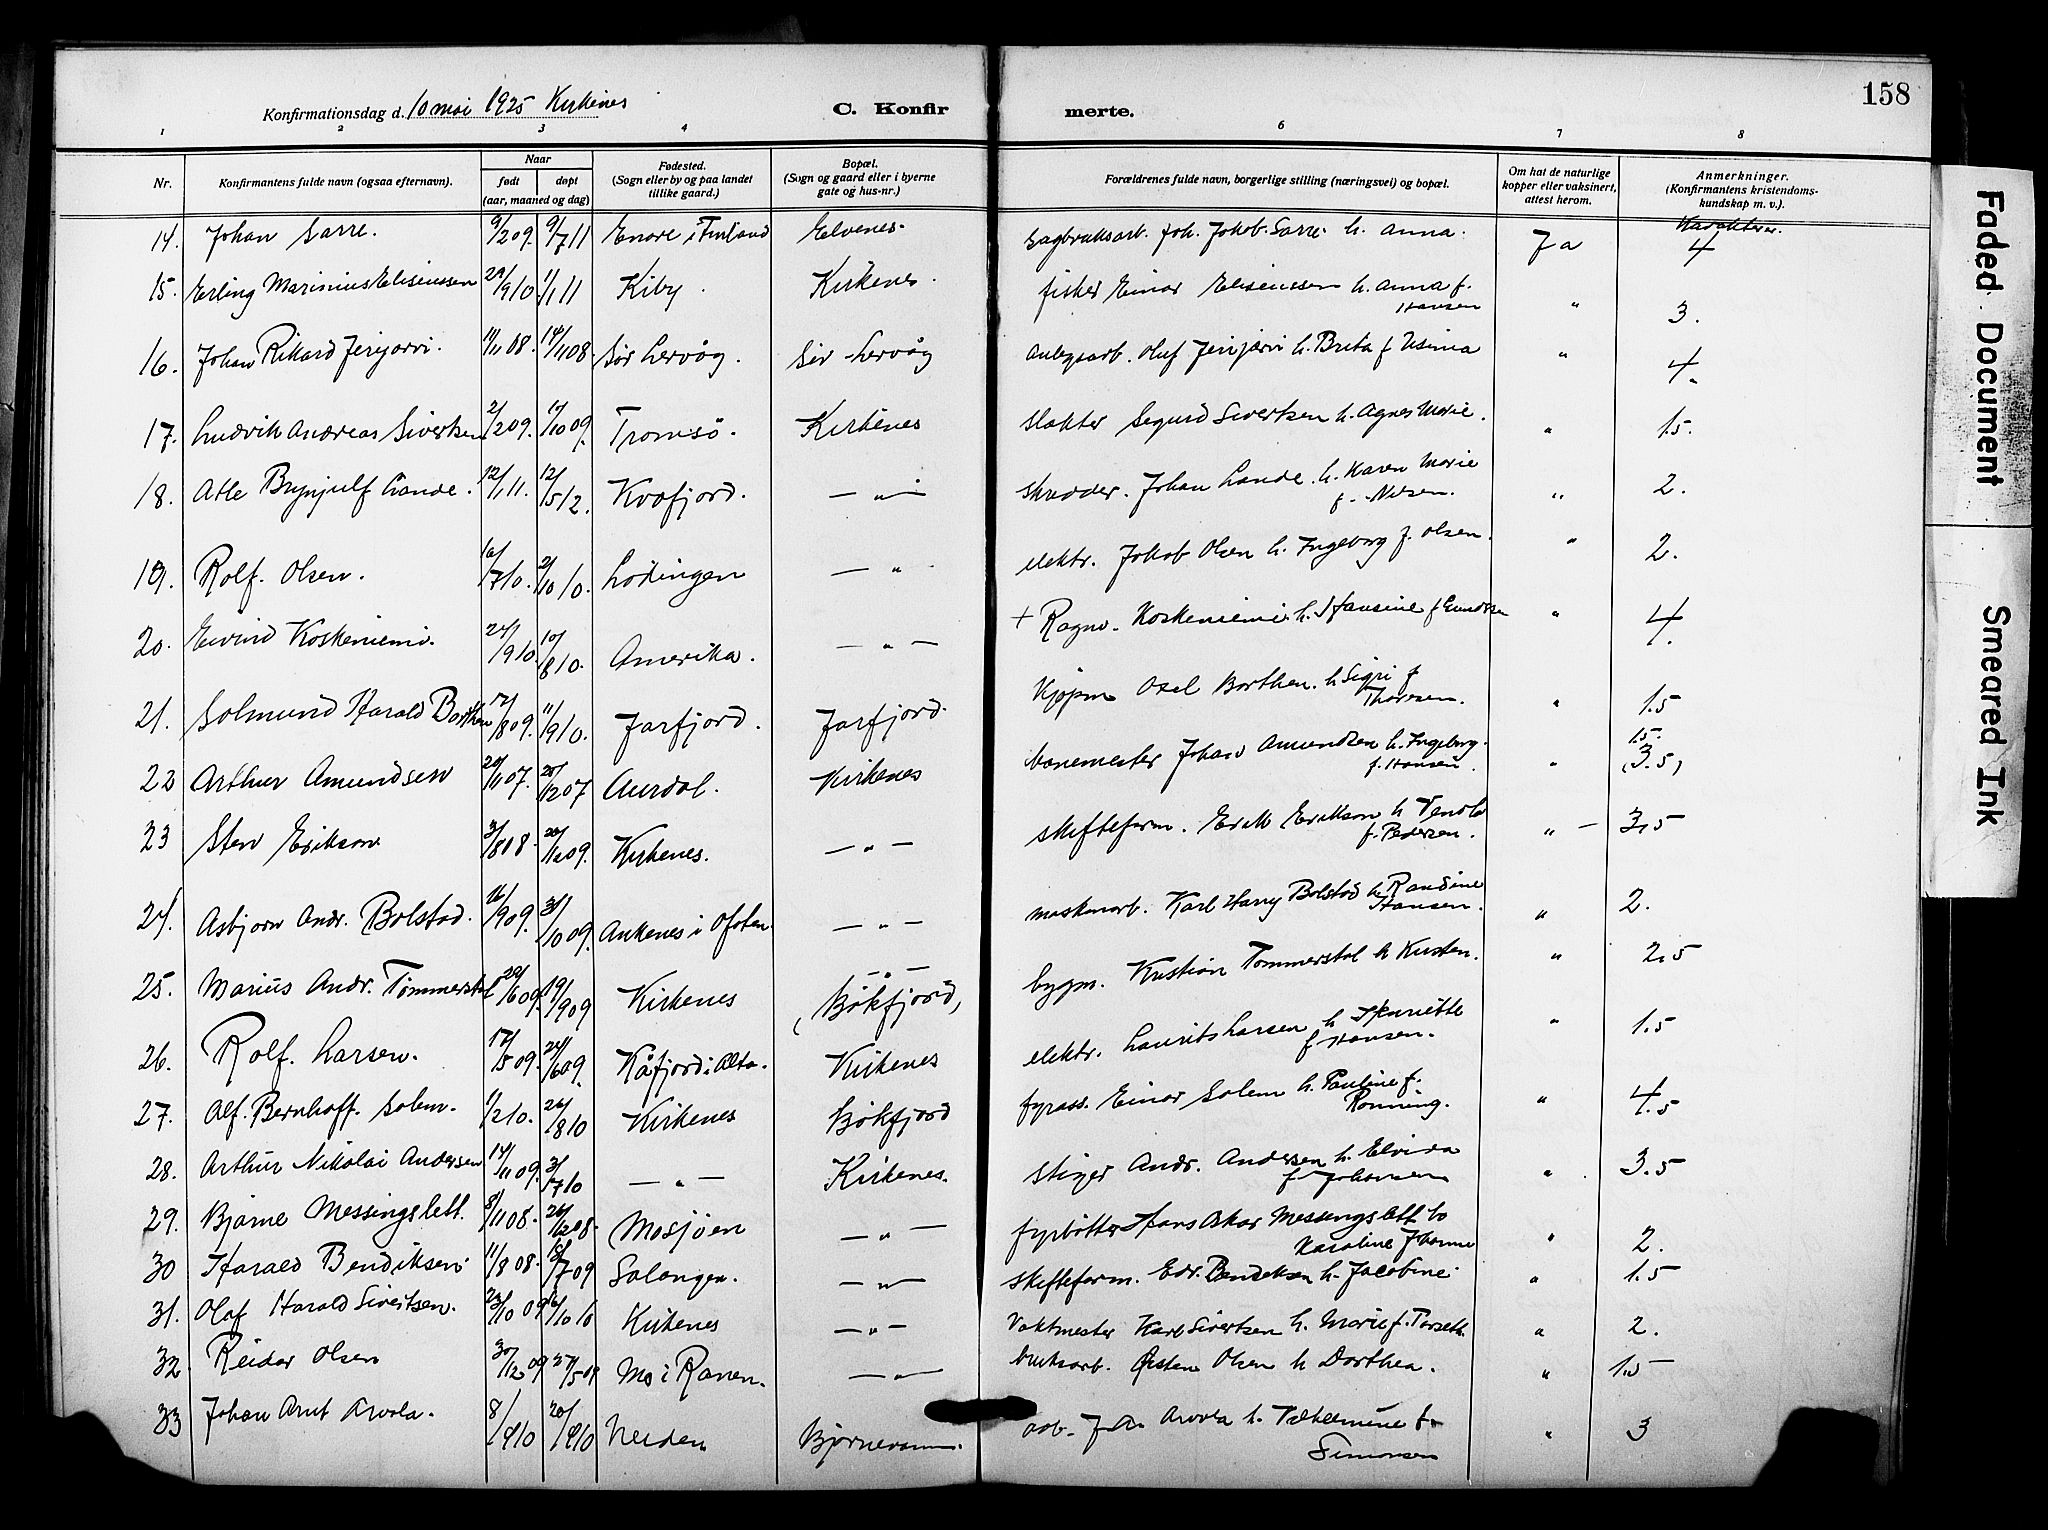 158
Konfirmationsdag d. 10 mai 1925 Kirkenes
C. Konfir merte.
1 2 3 4 6 7 8
Nr. Konfirmantens fulde navn (ogsaa efternavn). Naar født døpt (aar, maaned og dag) Fødested. (Sogn eller by og paa landet tillike gaard.) Bopæl. (Sogn og gaard eller i byerne gate og hus-nr.) Forældrenes fulde navn, borgerlige stilling (næringsvei) og bopæl. Om hat de naturlige kopper eller vaksinert, attest herom. Anmerkninger. (Konfirmantens kristendomskundskap m. v.).
Karakterer.
14. Johan Sarre. 9/2 09. 9/7 11 Enare i Finland Elvenes. Sagbruksarb. Joh. Jakob Sarre. h. Anna. Ja 4
15. Erling Marinius Eliseussen 29/9 10 1/1 11 Kiby. Kirkenes. fisker Einar Eliseussen h. Anna f. Hansen " 3.
16. Johan Rikard Jerijarvi. 11/11 08. 14/11 08. Sør Lervåg. Sør Lervåg anlegsarb. Oluf Jerijarvi h. Brita f. " 4.
17. Ludvik Andreas Sivertsen 2/2 09. 10/10 09. Tromsø. Kirkenes slakter Sigurd Sivertsen h. Agnes Marie. " 1.5.
18. Atle Brynjulf Lande. 12/1 11. 12/5 12. Kvæfjord. — " — skredder. Johan Lande. h. Karen Marie f. Nilsen. " 2.
19. Rolf. Olsen. 16/7 10. 2/10 10. Lødingen — " — elektr. Jakob Olsen h. Ingeborg f. Olsen. " 2.
20. Eivind Koskeniemi. 24/9 10. 10/8 10. Amerika. — " — + Ragnv. Koskeniemi h. Hansine f. " 4.
21. Solmund Harald Borthen 12/8 09. 11/9 10. Jarfjord. Jarfjord. Kjøpm Axel Borthen. h. Sigri f. Thoresen. " 1.5
22 Arthur Amundsen 20/11 07. 25/12 07 Aurdal. Kirkenes banemester Johan Amundsen h. Ingeborg f. Hansen. " 1.5. (3.5)
23 Sten Erikson 3/8 08. 26/12 09. Kirkenes. — " — skifteform. Erik Erikson h. Vendla f. Pedersen. " — 3,5
24. Asbjørn Andr. Bolstad. 16/9 09. 31/10 09. Ankenes i Ofoten. — " — maskinarb. Karl Harry Bolstad h. Randine Hansen. " 2.
25. Marius Andr. Tømmerstøl 22/6 09. 19/9 09 Kirkenes — " — (Bøkfjord) bygm. Kristian Tømmerstøl h. Kirsten. " 2,5
26. Rolf. Larsen. 17/5 09. 24/6 09. Kåfjord i Alta. Kirkenes elektr. Laurits Larsen h. Henriette f. Hansen. " 1.5
27. Alf. Bernhoff. Solem. 1/2 10. 26/8 10 Kirkenes Bøkfjord fyrass. Einar Solem h. Pauline f. Rønning. " 4.5
28. Arthur Nikolai Andersen 14/11 09. 31/7 10 — " — Kirkenes. stiger Andr. Andersen h. Elvida f. Johansen " 3.5
29. Bjarne Messingslett. 8/11 08. 26/12 08. Mosjøen — " — fyrbøtter Hans Oskar Messingslett h Karoline Johanne " 2.
30 Harald Bendiksen 11/8 08. 18/7 09 Salangen. — " — skifteform. Edv. Bendiksen h. Jacobine. " 1.5
31. Olaf Harald Sivertsen. 23/10 09 16/10 10 Kirkenes — " — Vaktmester Karl Sivertsen h. Marie f. Torseth. " 2.
32. Reidar Olsen 30/12 09 27/5 09 Mo i Ranen. — " — bruksarb. Østen Olsen h Dorthea. " 1.5
33 Johan Arnt Arvola. 8/9 10 20/9 10 Neiden Bjørnevann. arb. J. A. Arvola h. Vilhelmine f. Simonsen " 3
Faded Document
Smeared Ink